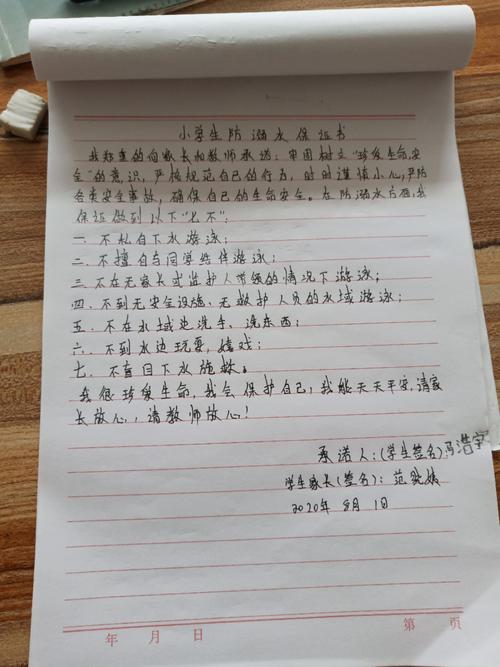 小学生防溺水保证书
我郑重的向家长和教师承诺：牢固树立“珍爱生命，安
全”的意识，严格规范自己的行为，时时谨慎小心，严防
各类安全事故，确保自己的生命安全。在防溺水方面，我
保证做到以下“七不”：
一．不私自下水游泳；
二．不擅自与同学结伴游泳；
三．不在无家长或监护人带领的情况下游泳；
四．不到无安全设施、无救护人员的水域游泳；
五．不在水域边洗手、洗东西；
六．不到水边玩耍，嬉戏；
七．不盲目下水施救。
我很珍爱生命，我会保护自己，我能天天平安，请家
长放心，请教师放心！
承诺人：(学生签名)冯浩宇
学生家长(签名)：范
2020年 8月 1日
年 月 日
第 页